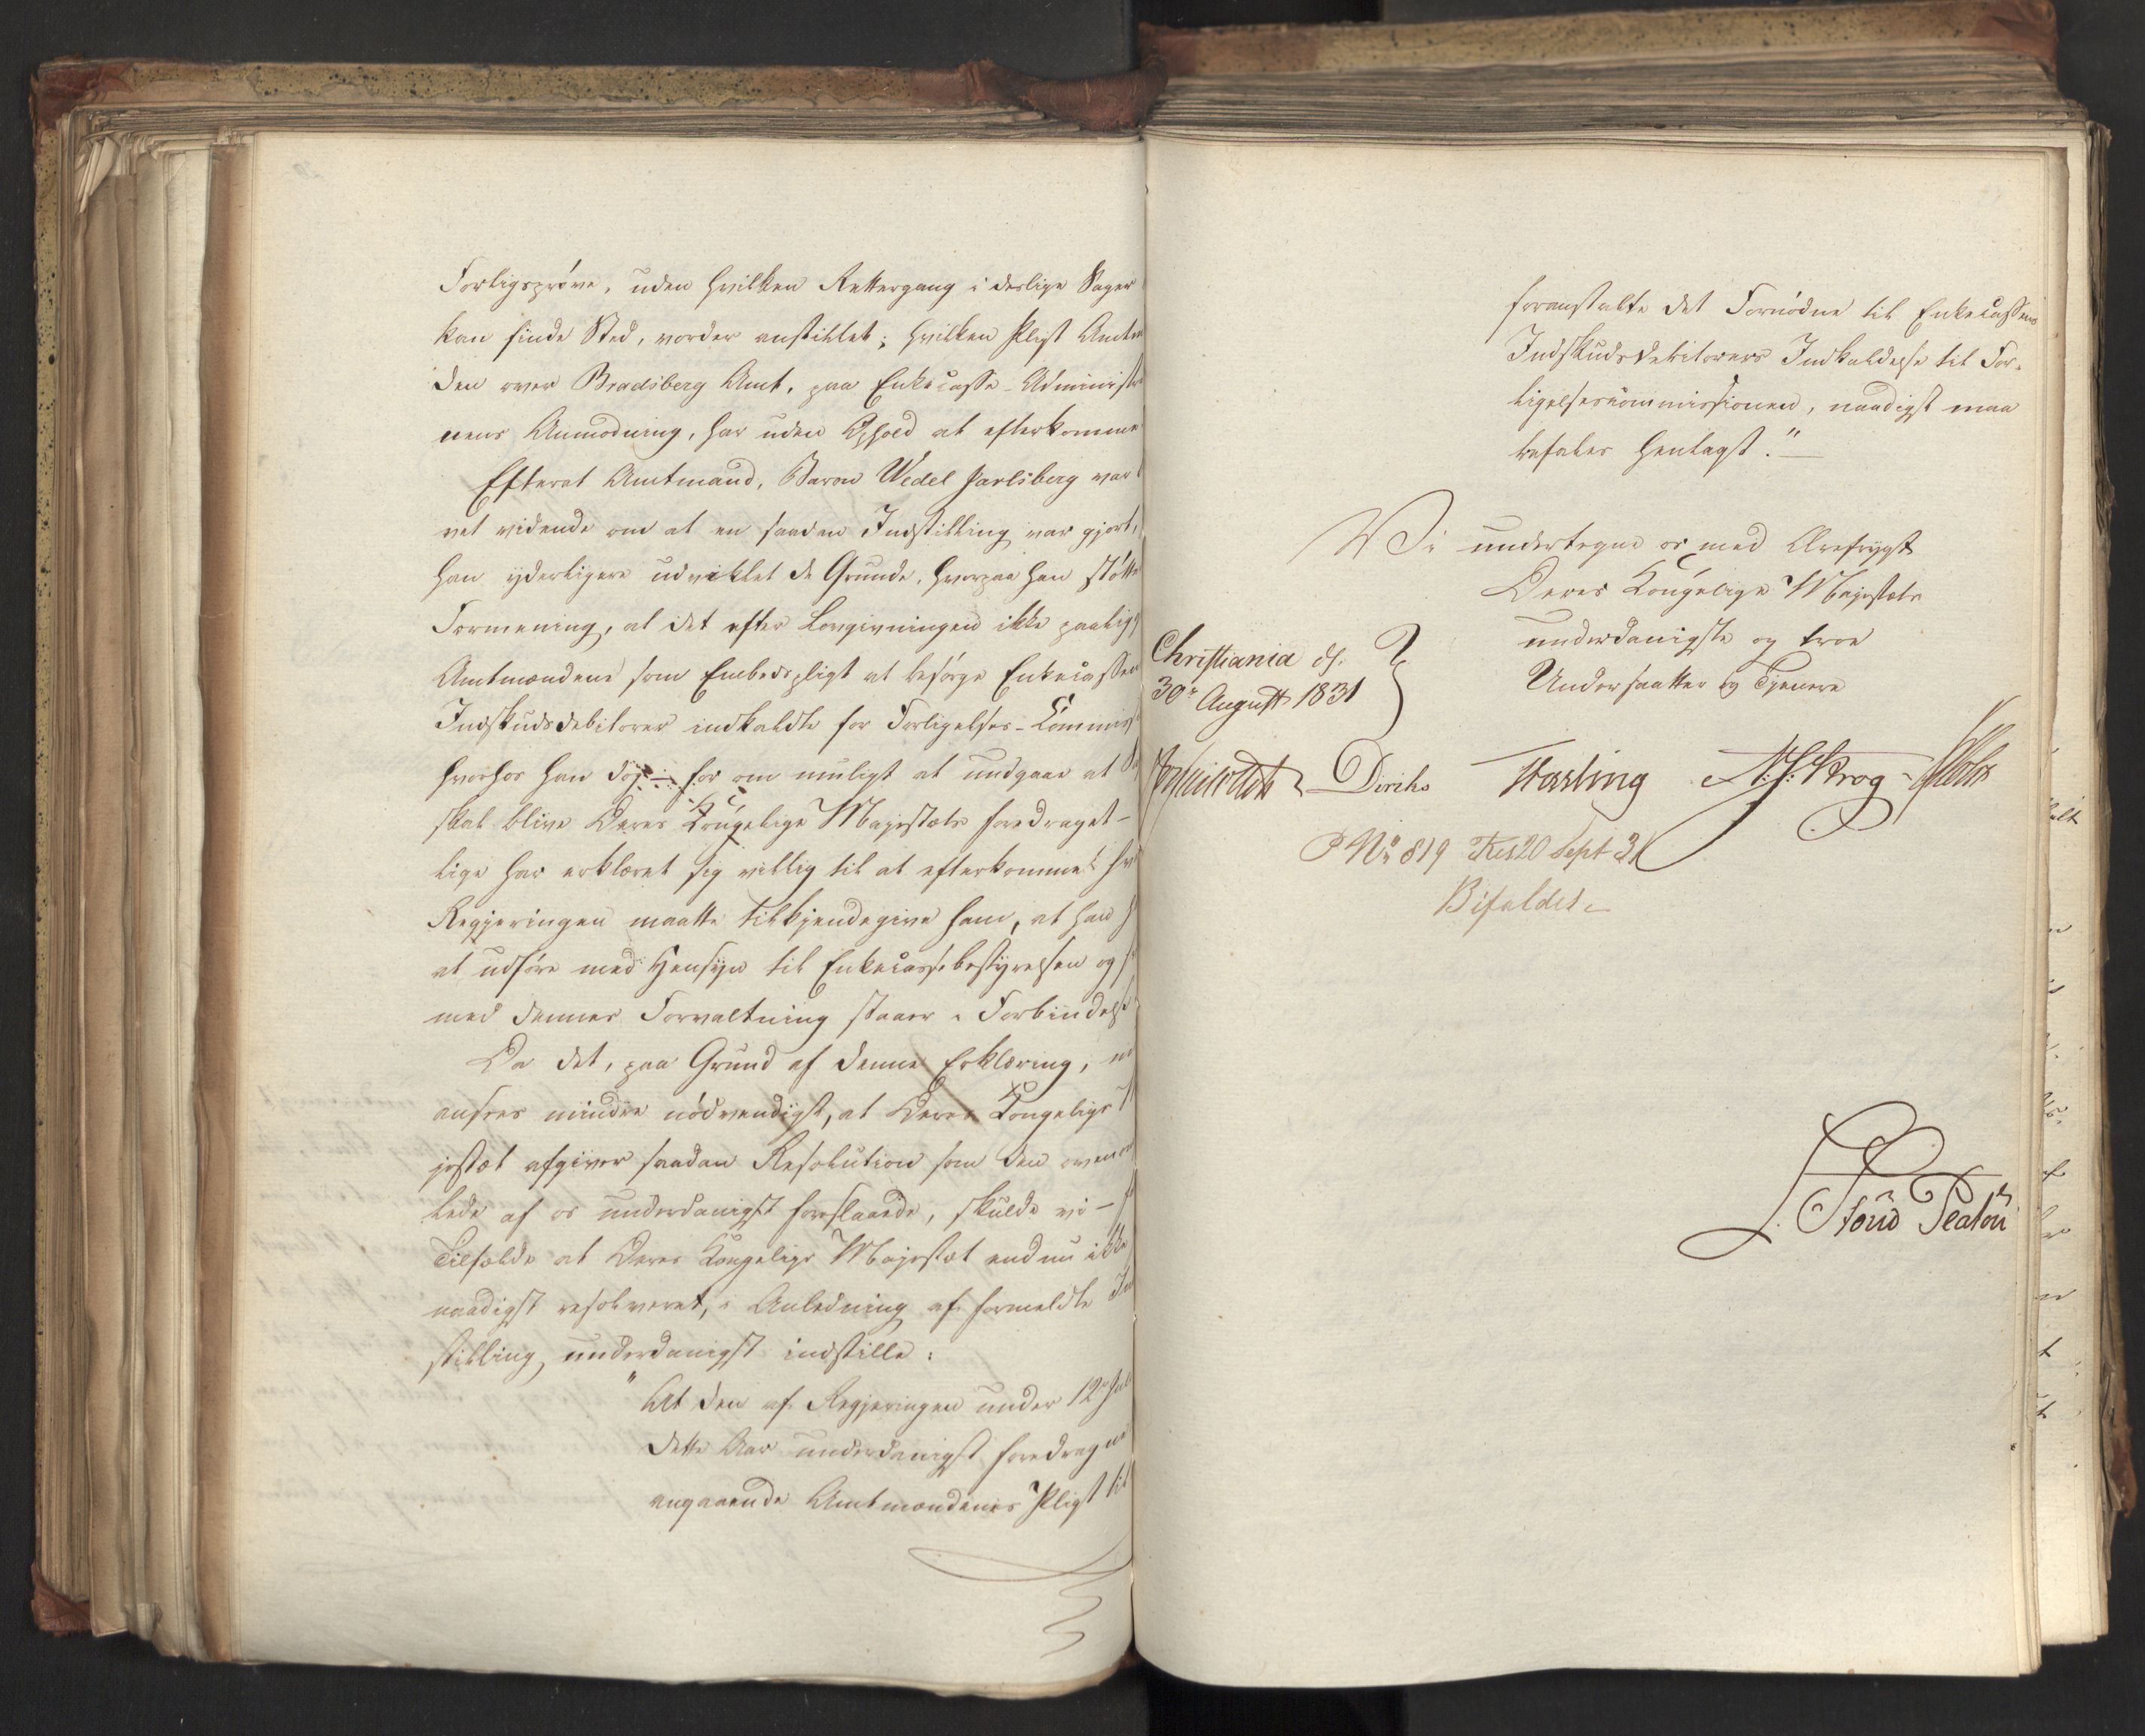 Forligsprøve, uden hvilken Rettergang i deslige Sager
kan finde Sted, vorder anstillet; hvilken Pligt Amtm
den over Bradsberg Amt, paa Enkecasse-Administra
nens Anmodning, har uden Ophold at efterkomme
Efterat Amtmand, Baron Wedel Jarlsberg var
vet vidende om at en saadan Indstilling var gjort,
han yderligere udviklet de Grunde, hvorpaa han støtte
Formening, at det efter Lovgivningen ikke paaligg
Amtmændene som Embedspligt at besørge Enkecassen
Indskudsdebitorer indkaldte for Forligelses-Commis
hvorhos han dog for om muligt at undgaae at
skal blive Deres Kongelige Majestæt foredraget-
lige har erklæret sig villig til at efterkomme
Regjeringen maatte tilkjendegive ham, at han
at udføre med Hensyn til Enkecassebestyrelsen og
med dennes Forvaltning staaer i Forbindelse
Da det, paa Grund af denne Erklæring,
ansees mindre nødvendigt, at Deres Kongelige
jestæt afgiver saadan Resolution som den oven
lede af os underdanigst foreslaaede, skulde vi-
Tilfælde at Deres Kongelige Majestæt endnu ikke
naadigst resolveret, i Anledning af formeldte Ind
stilling, underdanigst indstille:
"At den af Regjeringen under 12te Jul
dette Aar underdanigst foredragne
angaaende Amtmændenes Pligt til
foranstalte det Fornødne til Enkecassens
Indskudsdebitorers Indkaldelse til For-
ligelsescommissionen, naadigst maa
befales henlagt."
Vi undertegne os med Ærefrygt
Deres Kongelige Majestæts
underdanigste og troe
Undersaatter og Tjenere
Christiania d.
30te August 1831
Diriks Fasting Krog
P No 819 Res 20 Sept 31
Bifaldes